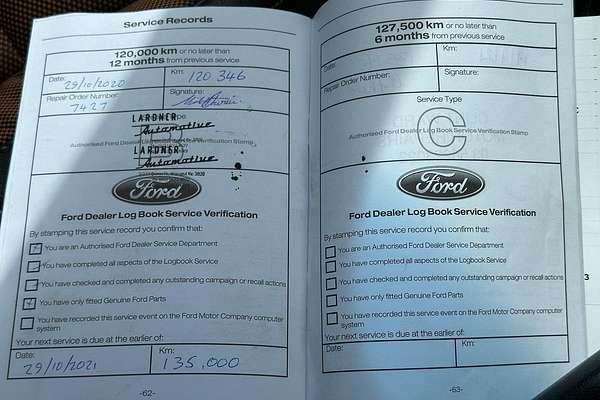 Service Records
120,000 km or no later than
12 months from previous service
Date: 29/10/2020
Km: 120 346
Repair Order Number: 7427
Signature:
LARDNER
Automotive
Authorised Ford Dealer Log Book Service Verification Stamp
LARDNER
Automotive
Ford
Ford Dealer Log Book Service Verification
By stamping this service record you confirm that:
You are an Authorised Ford Dealer Service Department
You have completed all aspects of the Logbook Service
You have checked and completed any outstanding campaign or recall actions
You have only fitted Genuine Ford Parts
You have recorded this service event on the Ford Motor Company computer
system
Your next service is due at the earlier of:
Date: 29/10/2021
Km: 135,000
-62-
127,500 km or no later than
6 months from previous service
Date:
Km:
Repair Order Number:
Signature:
Service Type
C
Authorised Ford Dealer Log Book Service Verification Stamp
Ford
Ford Dealer Log Book Service Verification
By stamping this service record you confirm that:
You are an Authorised Ford Dealer Service Department
You have completed all aspects of the Logbook Service
You have checked and completed any outstanding campaign or recall actions
You have only fitted Genuine Ford Parts
You have recorded this service event on the Ford Motor Company computer
system
Your next service is due at the earlier of:
Date:
Km:
-63-
3